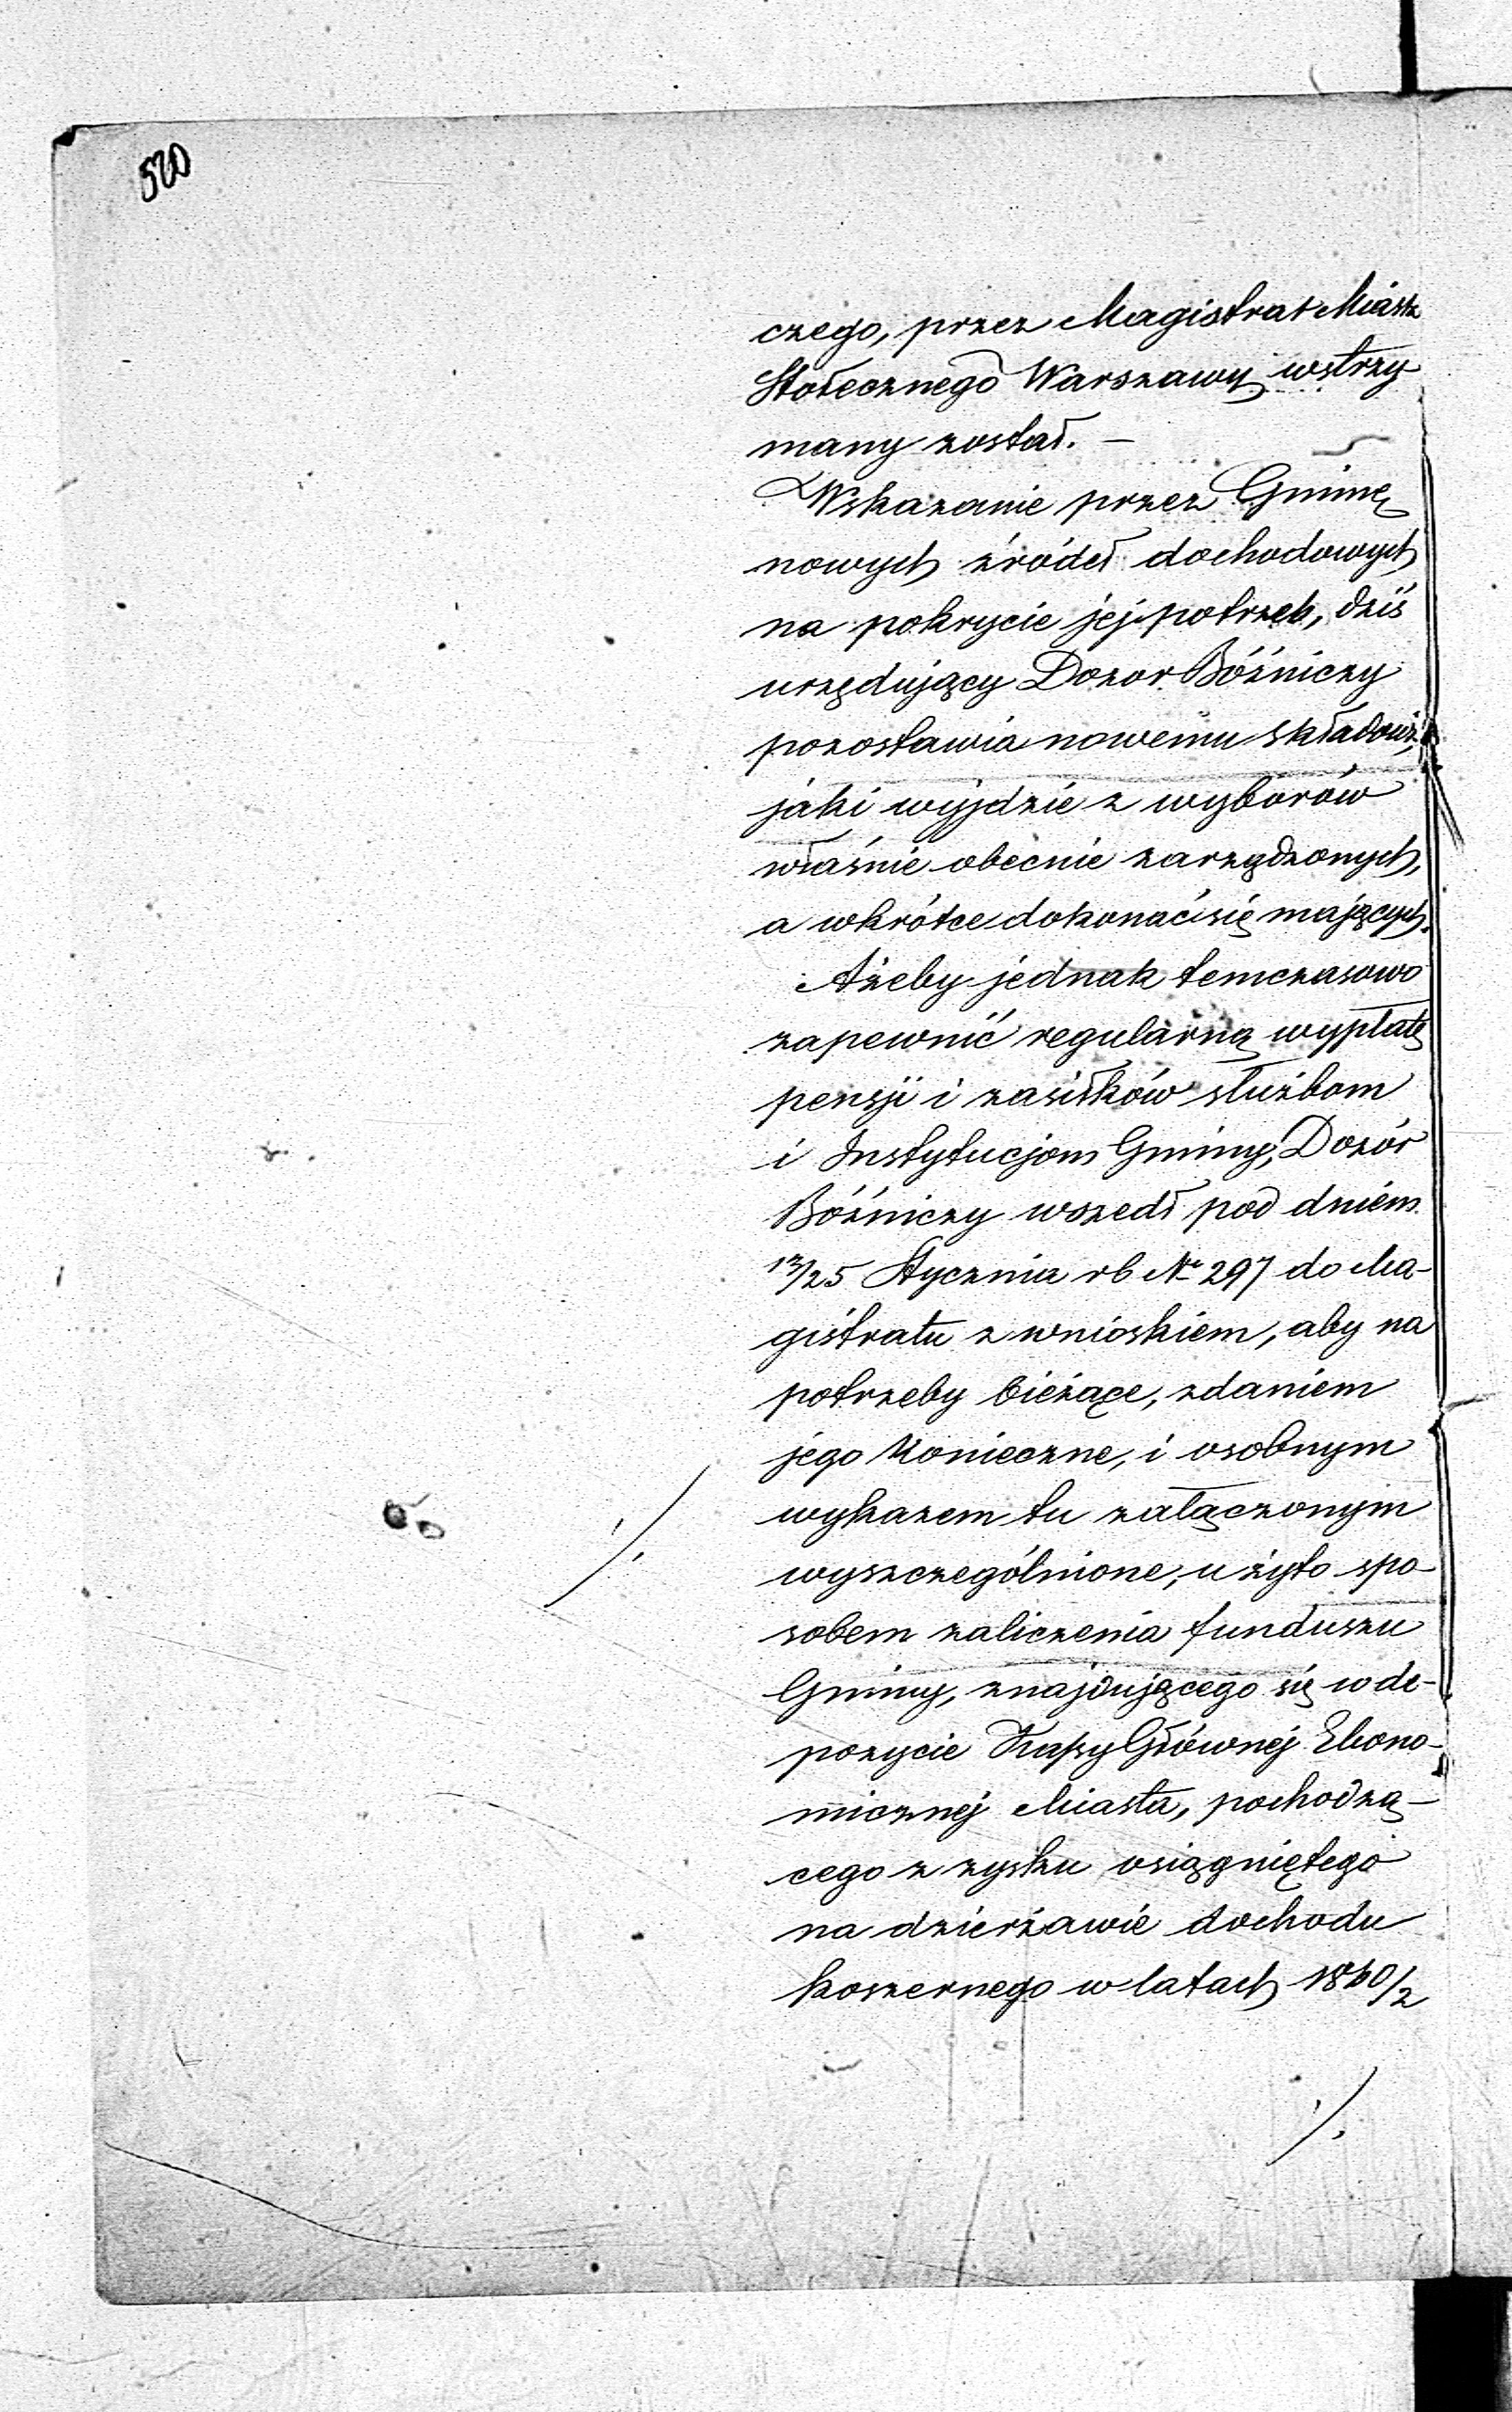 520
czego, przez Magistrat Miasta
Stołecznego Warszawy wstrzy
many został. —
Wskazanie przez Gminę
nowych źródeł dochodowych
na pokrycie jej potrzeb, dziś
urzędujący Dozor Bóźniczy
pozostawia nowemu składowi,
jaki wyjdzie z wyborów
właśnie obecnie zarządzonych,
a wkrótce dokonać się mających.
Ażeby jednak temczasowo
zapewnić regularną wypłatę
pensji i zasiłków służbom
i Instytucjom Gminy, Dozór
Bóźniczy wszedł pod dniem
13/25 Stycznia rb No 297 do Ma-
gistratu z wnioskiem, aby na
potrzeby bieżące, zdaniem
jego konieczne, i osobnym
wykazem tu załączonym
wyszczególnione, użyto spo-
sobem zaliczenia funduszu
Gminy, znajdującego się w de-
pozycie Kassy Głównej Ekono-
micznej Miasta, pochodzą-
cego z zysku osiągniętego
na dzierżawie dochodu
koszernego w latach 1860/2